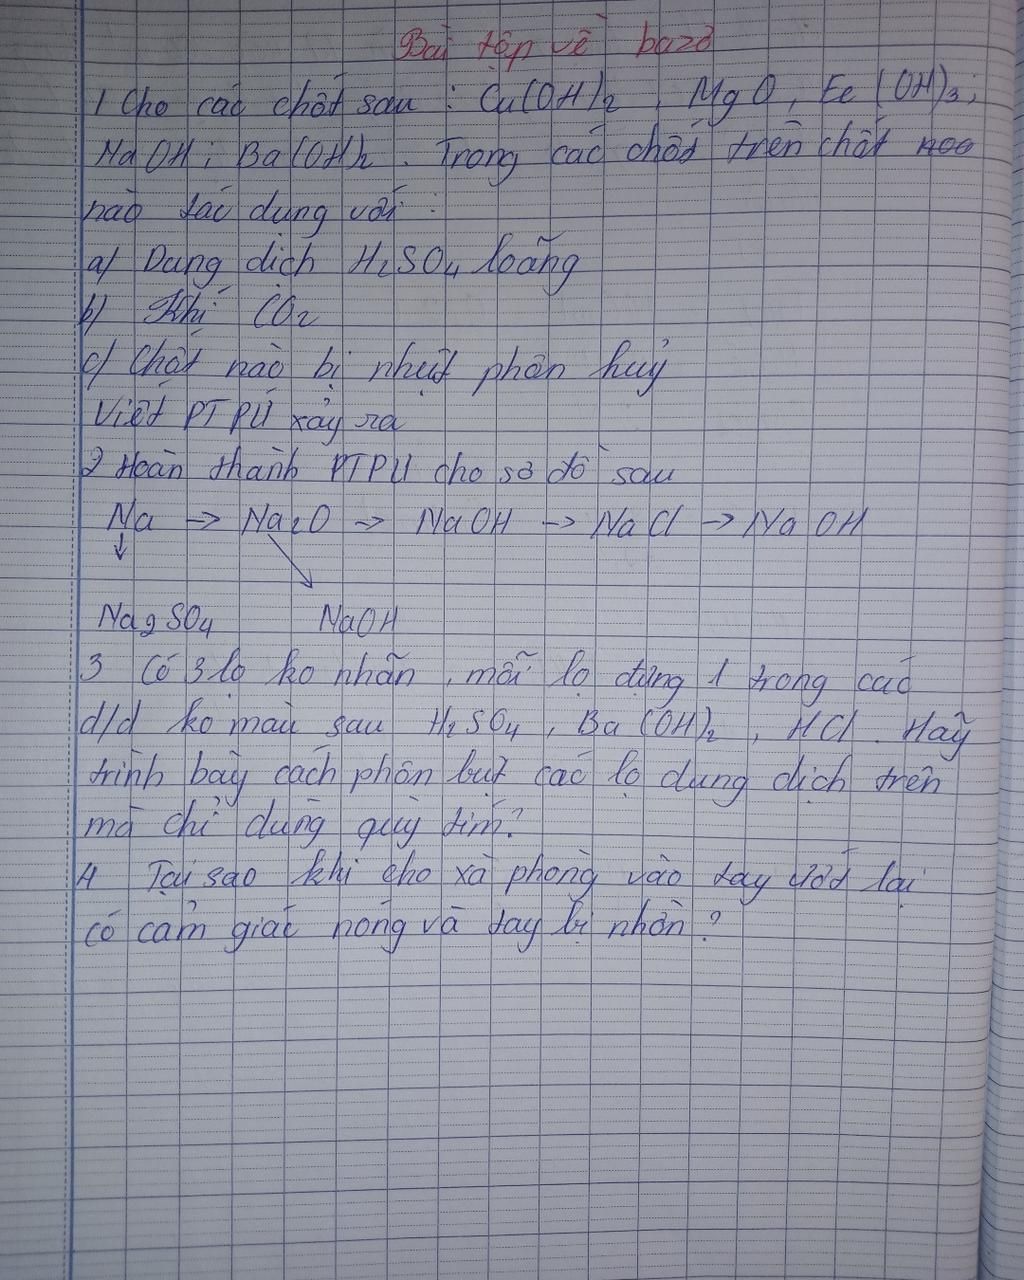 Bài tập về bazơ
1 Cho các chất sau : Cu(OH)2 , MgO, Fe(OH)3;
NaOH; Ba(OH)2 . Trong các chất trên chất
nào tác dụng với :
a) Dung dịch H2SO4 loãng
b) Khí CO2
c) Chất nào bị nhiệt phân huỷ
Viết PTPƯ xảy ra
2 Hoàn thành PTPƯ cho sơ đồ sau
Na → Na2O → NaOH → NaCl → NaOH
↓ ↘
Na2SO4 NaOH
3 Có 3 lọ ko nhãn, mỗi lọ đựng 1 trong các
d/d ko màu sau H2SO4, Ba(OH)2, HCl. Hãy
trình bày cách phân biệt các lọ dung dịch trên
mà chỉ dùng quỳ tím?
4 Tại sao khi cho xà phòng vào tay ướt lại
có cảm giác nóng và tay bị nhờn?